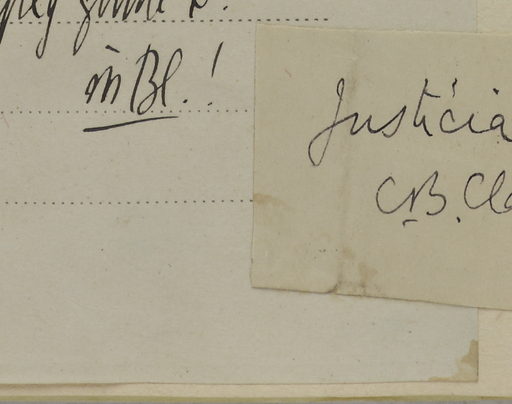 in Bl.!
Justicia
C.B.Cla